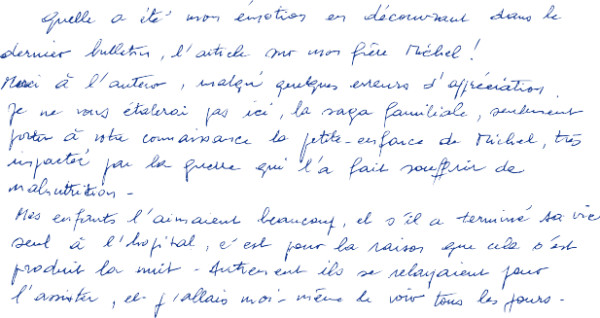 Quelle a été mon émotion en découvrant dans le
dernier bulletin, l'article sur mon frère Michel !
Merci à l'auteur, malgré quelques erreurs d'appréciation.
Je ne vous étalerai pas ici, la saga familiale, seulement
porter à votre connaissance la petite-enfance de Michel, très
impacté par la guerre qui l'a fait souffrir de
malnutrition -
Mes enfants l'aimaient beaucoup, et s'il a terminé sa vie
seul à l'hopital, c'est pour la raison que cela s'est
produit la nuit - Autrement ils se relayaient pour
l'assister, et j'allais moi-même le voir tous les jours -